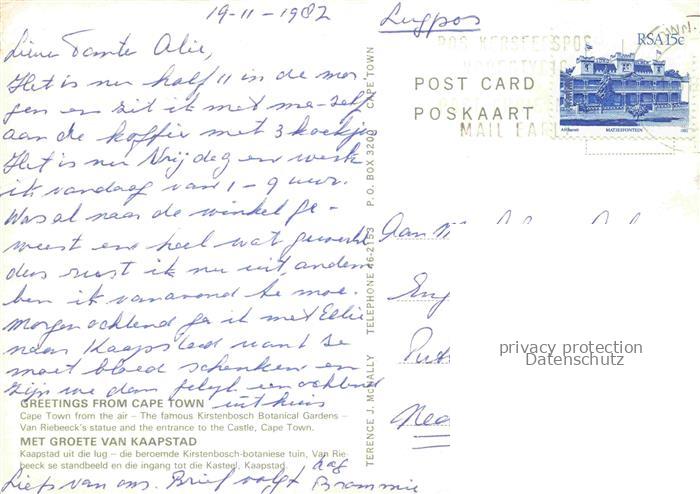 19-11-1982
Lugpos
Lieve Tante Alie,
Het is nu half 11 in de mor-
gen en zit ik met me-zelf
aan de koffie met 3 koekjes
Het is nu Vrijdag en werk
ik vandaag van 1-9 uur.
Was al naar de winkel ge-
weest en heel wat gewerkt
dus rust ik nu uit, anders
ben ik vanavond te moe.
Morgenochtend ga ik met Ellie
naar Kaapstad want ze
moet bloed schenken en
zijn we dan gelijk een ochtend
uit huis
Liefs van ons. Brief volgt
RSA 15c
MATJESFONTEIN
POS KERSFEESPOS
MAIL EARLY
POST CARD
POSKAART
TERENCE J. McNALLY TELEPHONE 46-2153 P.O. BOX 3200 CAPE TOWN
Aan
privacy protection
Datenschutz
GREETINGS FROM CAPE TOWN
Cape Town from the air – The famous Kirstenbosch Botanical Gardens –
Van Riebeeck's statue and the entrance to the Castle, Cape Town.
MET GROETE VAN KAAPSTAD
Kaapstad uit die lug – die beroemde Kirstenbosch-botaniese tuin, Van Rie-
beeck se standbeeld en die ingang tot die Kasteel, Kaapstad.